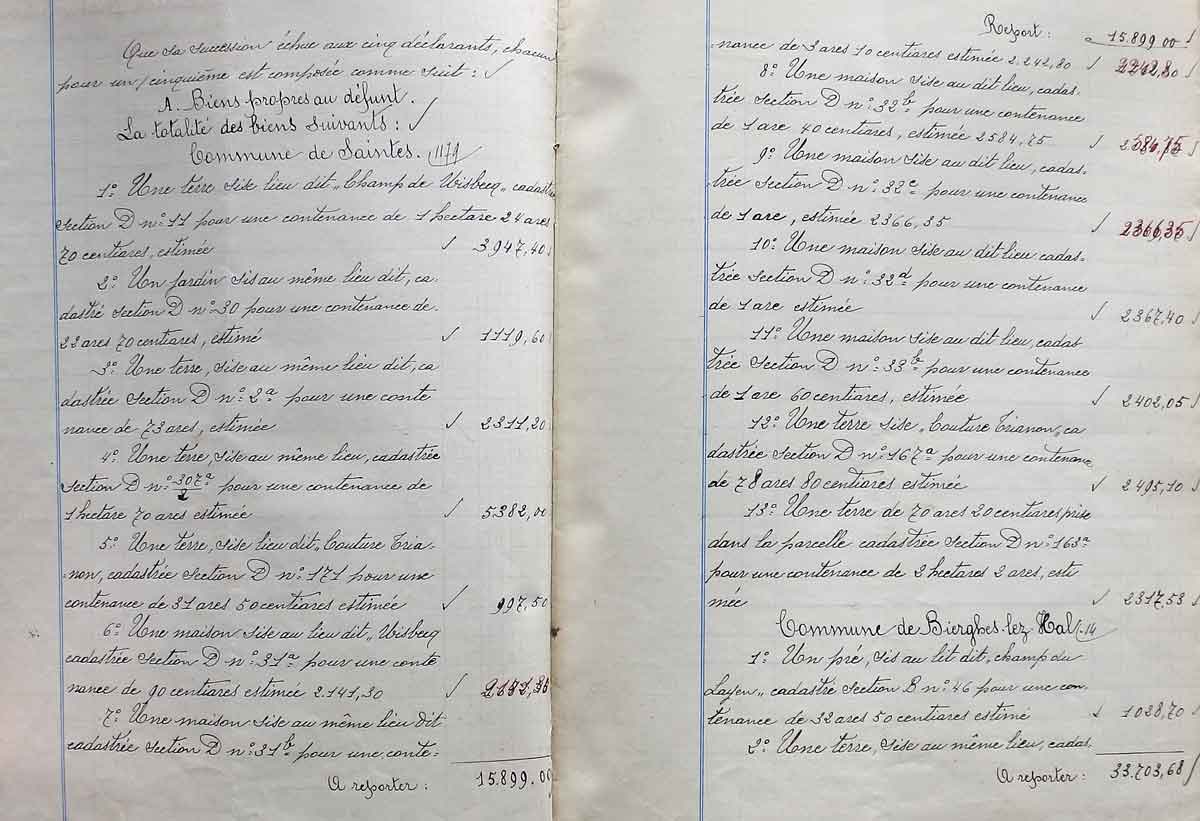 Que sa succession échue aux cinq déclarants, chacun
pour un cinquième est composée comme suit : √
A. Biens propres au défunt.
La totalité des biens suivants : √
Commune de Saintes. (1179
1º Une terre sise lieu dit „Champ de Wisbecq„ cadastrée
section D nº 11 pour une contenance de 1 hectare 24 ares
70 centiares, estimée √ 3947,40
2º Un jardin sis au même lieu dit, ca-
dastré section D nº 30 pour une contenance de.
22 ares 70 centiares, estimé √ 1119,60
3º Une terre, sise au même lieu dit, ca
dastrée section D nº 2a pour une conte
nance de 73 ares, estimée √ 2311,20
4º Une terre, sise au même lieu, cadastrée
section D nº 307a/2 pour une contenance de
1 hectare 70 ares estimée √ 5382,00
5º Une terre, sise lieu dit „Couture Tria-
non, cadastrée section D nº 171 pour une
contenance de 31 ares 50 centiares estimée √ 997,50
6º Une maison sise au lieu dit „Wisbecq
cadastrée section D nº 31a pour une conte
nance de 90 centiares estimée 2.141,30 √
7º Une maison sise au même lieu dit
cadastrée section D nº 31b pour une conte-
A reporter : 15.899.00
Report : 15.899 00
nance de 3 ares 10 centiares estimée 2.242,80 √ 2242,80
8º Une maison sise au dit lieu, cadas-
trée section D nº 32b pour une contenance
de 1 are 40 centiares, estimée 2584,75 √ 2584,75
9º Une maison sise au dit lieu, cadas-
trée section D nº 32c pour une contenance
de 1 are, estimée 2366,35 √ 2366,35
10º Une maison sise au dit lieu cadas-
trée section D nº 32d pour une contenance
de 1 are estimée √ 2367,40
11º Une maison sise au dit lieu, cadas
trée section D nº 33b pour une contenance
de 1 are 60 centiares, estimée √ 2402,05
12º Une terre sise „Couture Trianon„ ca
dastrée section D nº 167a pour une contenance
de 78 ares 80 centiares estimée √ 2495,10
13º Une terre de 70 ares 20 centiares prise
dans la parcelle cadastrée section D nº 163a
pour une contenance de 2 hectares 2 ares, esti
mée √ 2317,53
Commune de Bierghes lez Hal
1º Un pré, sis au lit dit „champ du
Layen„ cadastré section B nº 46 pour une con
tenance de 32 ares 50 centiares estimé √ 1028,70
2º Une terre, sise au même lieu, cadas.
A reporter : 33.703,68